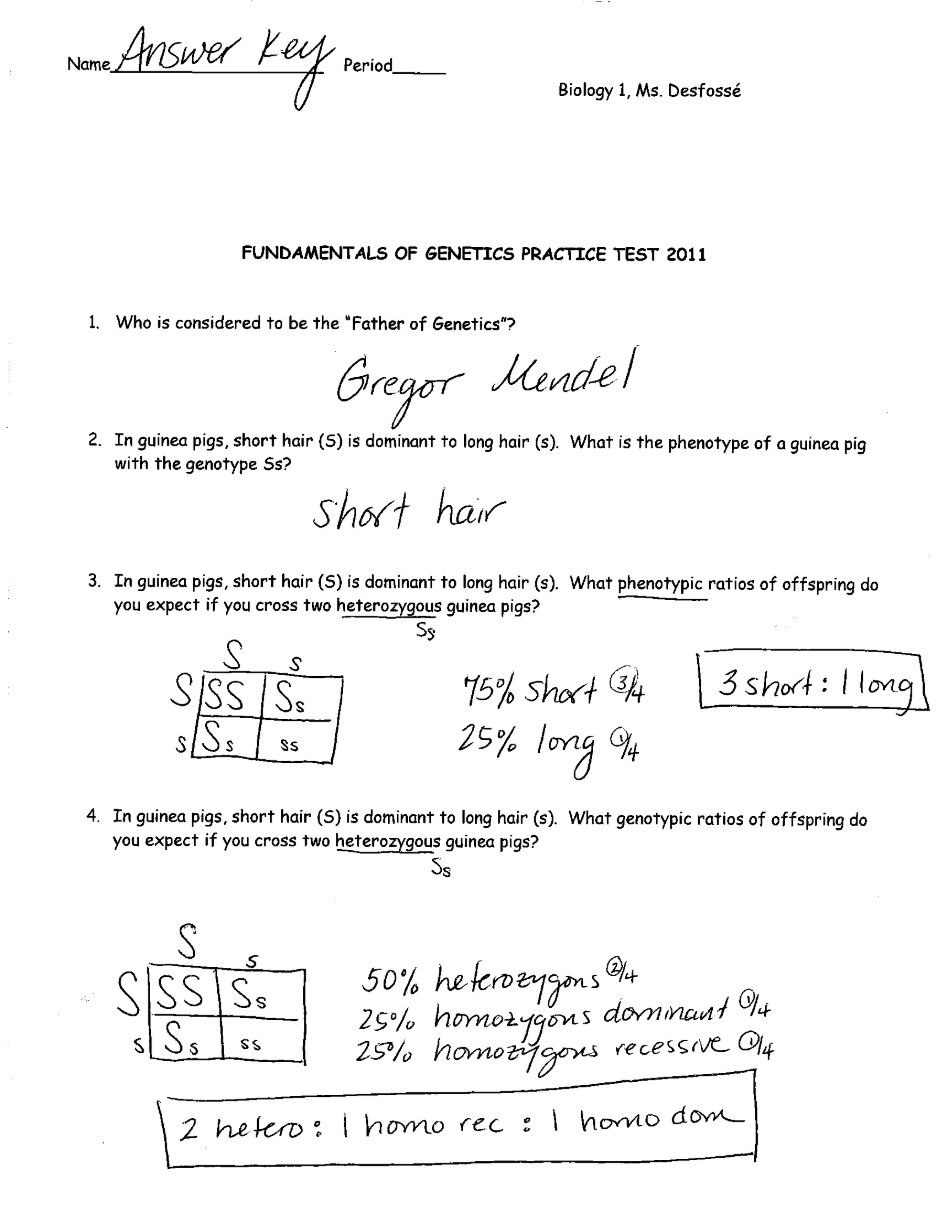 Name Answer Key Period_____
Biology 1, Ms. Desfossé
FUNDAMENTALS OF GENETICS PRACTICE TEST 2011
1. Who is considered to be the "Father of Genetics"?
Gregor Mendel
2. In guinea pigs, short hair (S) is dominant to long hair (s). What is the phenotype of a guinea pig
with the genotype Ss?
short hair
3. In guinea pigs, short hair (S) is dominant to long hair (s). What phenotypic ratios of offspring do
you expect if you cross two heterozygous guinea pigs?
Ss
S s
S SS Ss
s Ss ss
75% short 3/4
25% long 1/4
3 short : 1 long
4. In guinea pigs, short hair (S) is dominant to long hair (s). What genotypic ratios of offspring do
you expect if you cross two heterozygous guinea pigs?
Ss
S s
S SS Ss
s Ss ss
50% heterozygous 2/4
25% homozygous dominant 1/4
25% homozygous recessive 1/4
2 hetero : 1 homo rec : 1 homo dom